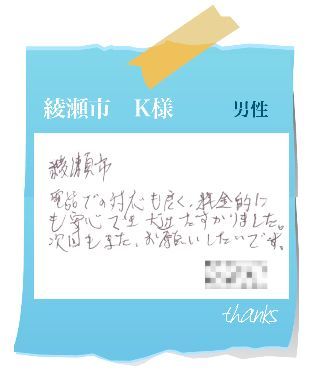 綾瀬市　K様　男性
綾瀬市
電話での対応も良く、料金的に
も安心でき 大変たすかりました。
次回もまた、お願いしたいです。
thanks